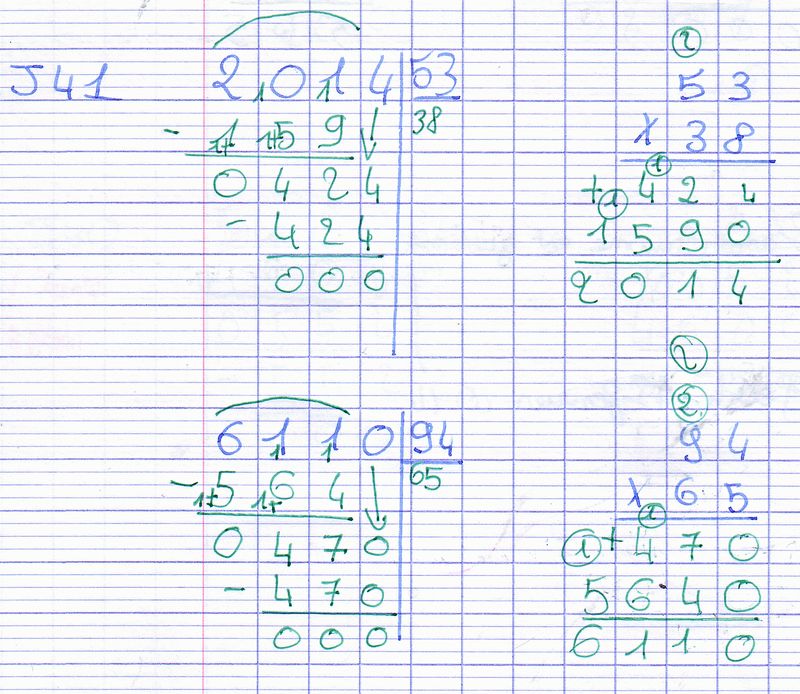 J41
2 0 1 4 53
- 1 5 9 38
0 4 2 4
- 4 2 4
0 0 0
2
5 3
x 3 8
1
+ 4 2 4
1
1 5 9 0
2 0 1 4
6 1 1 0 94
- 5 6 4 65
0 4 7 0
- 4 7 0
0 0 0
2
2
9 4
x 6 5
1
1 + 4 7 0
5 6 4 0
6 1 1 0